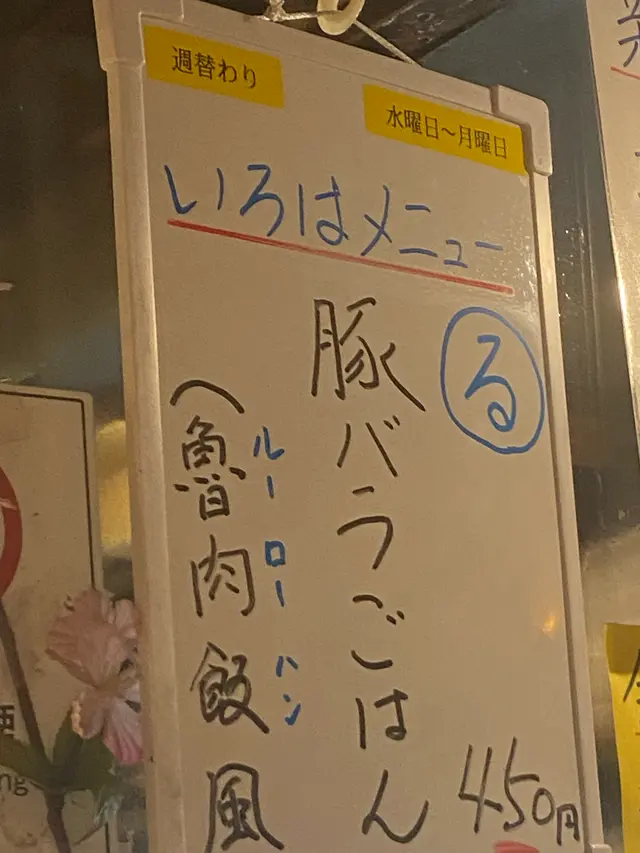 週替わり
水曜日～月曜日
いろはメニュー
る
豚バラごはん
450円
（魯肉飯風
ルーローハン